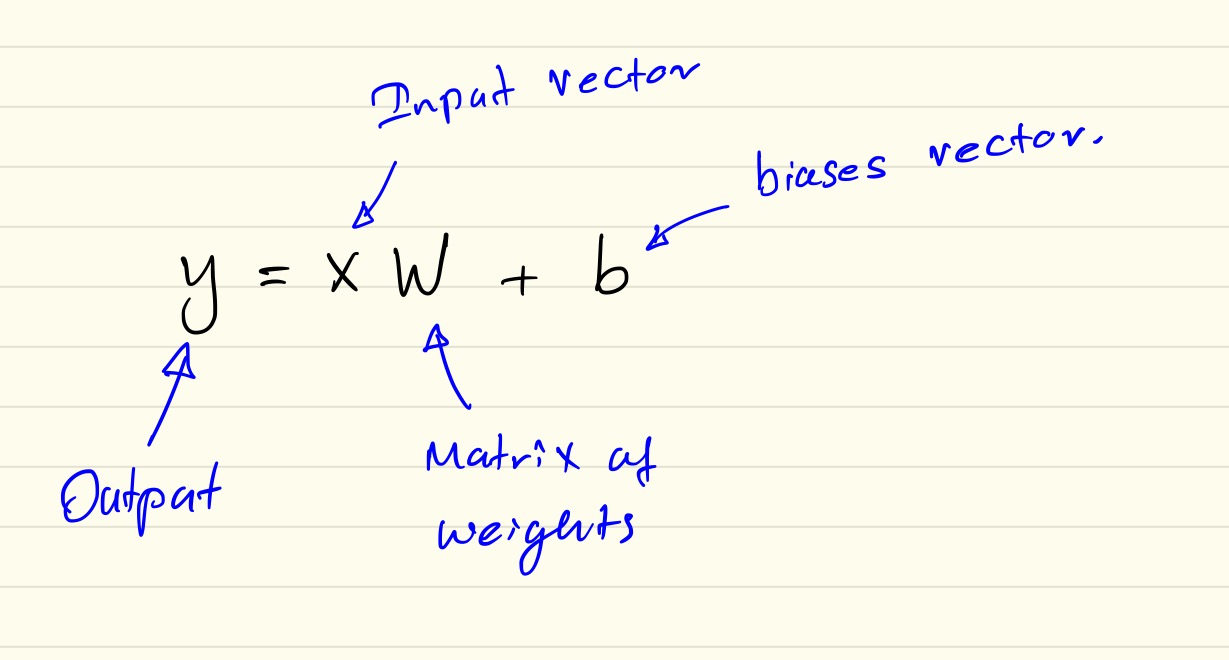 Input vector
biases vector.
y = x W + b
Output
Matrix of
weights